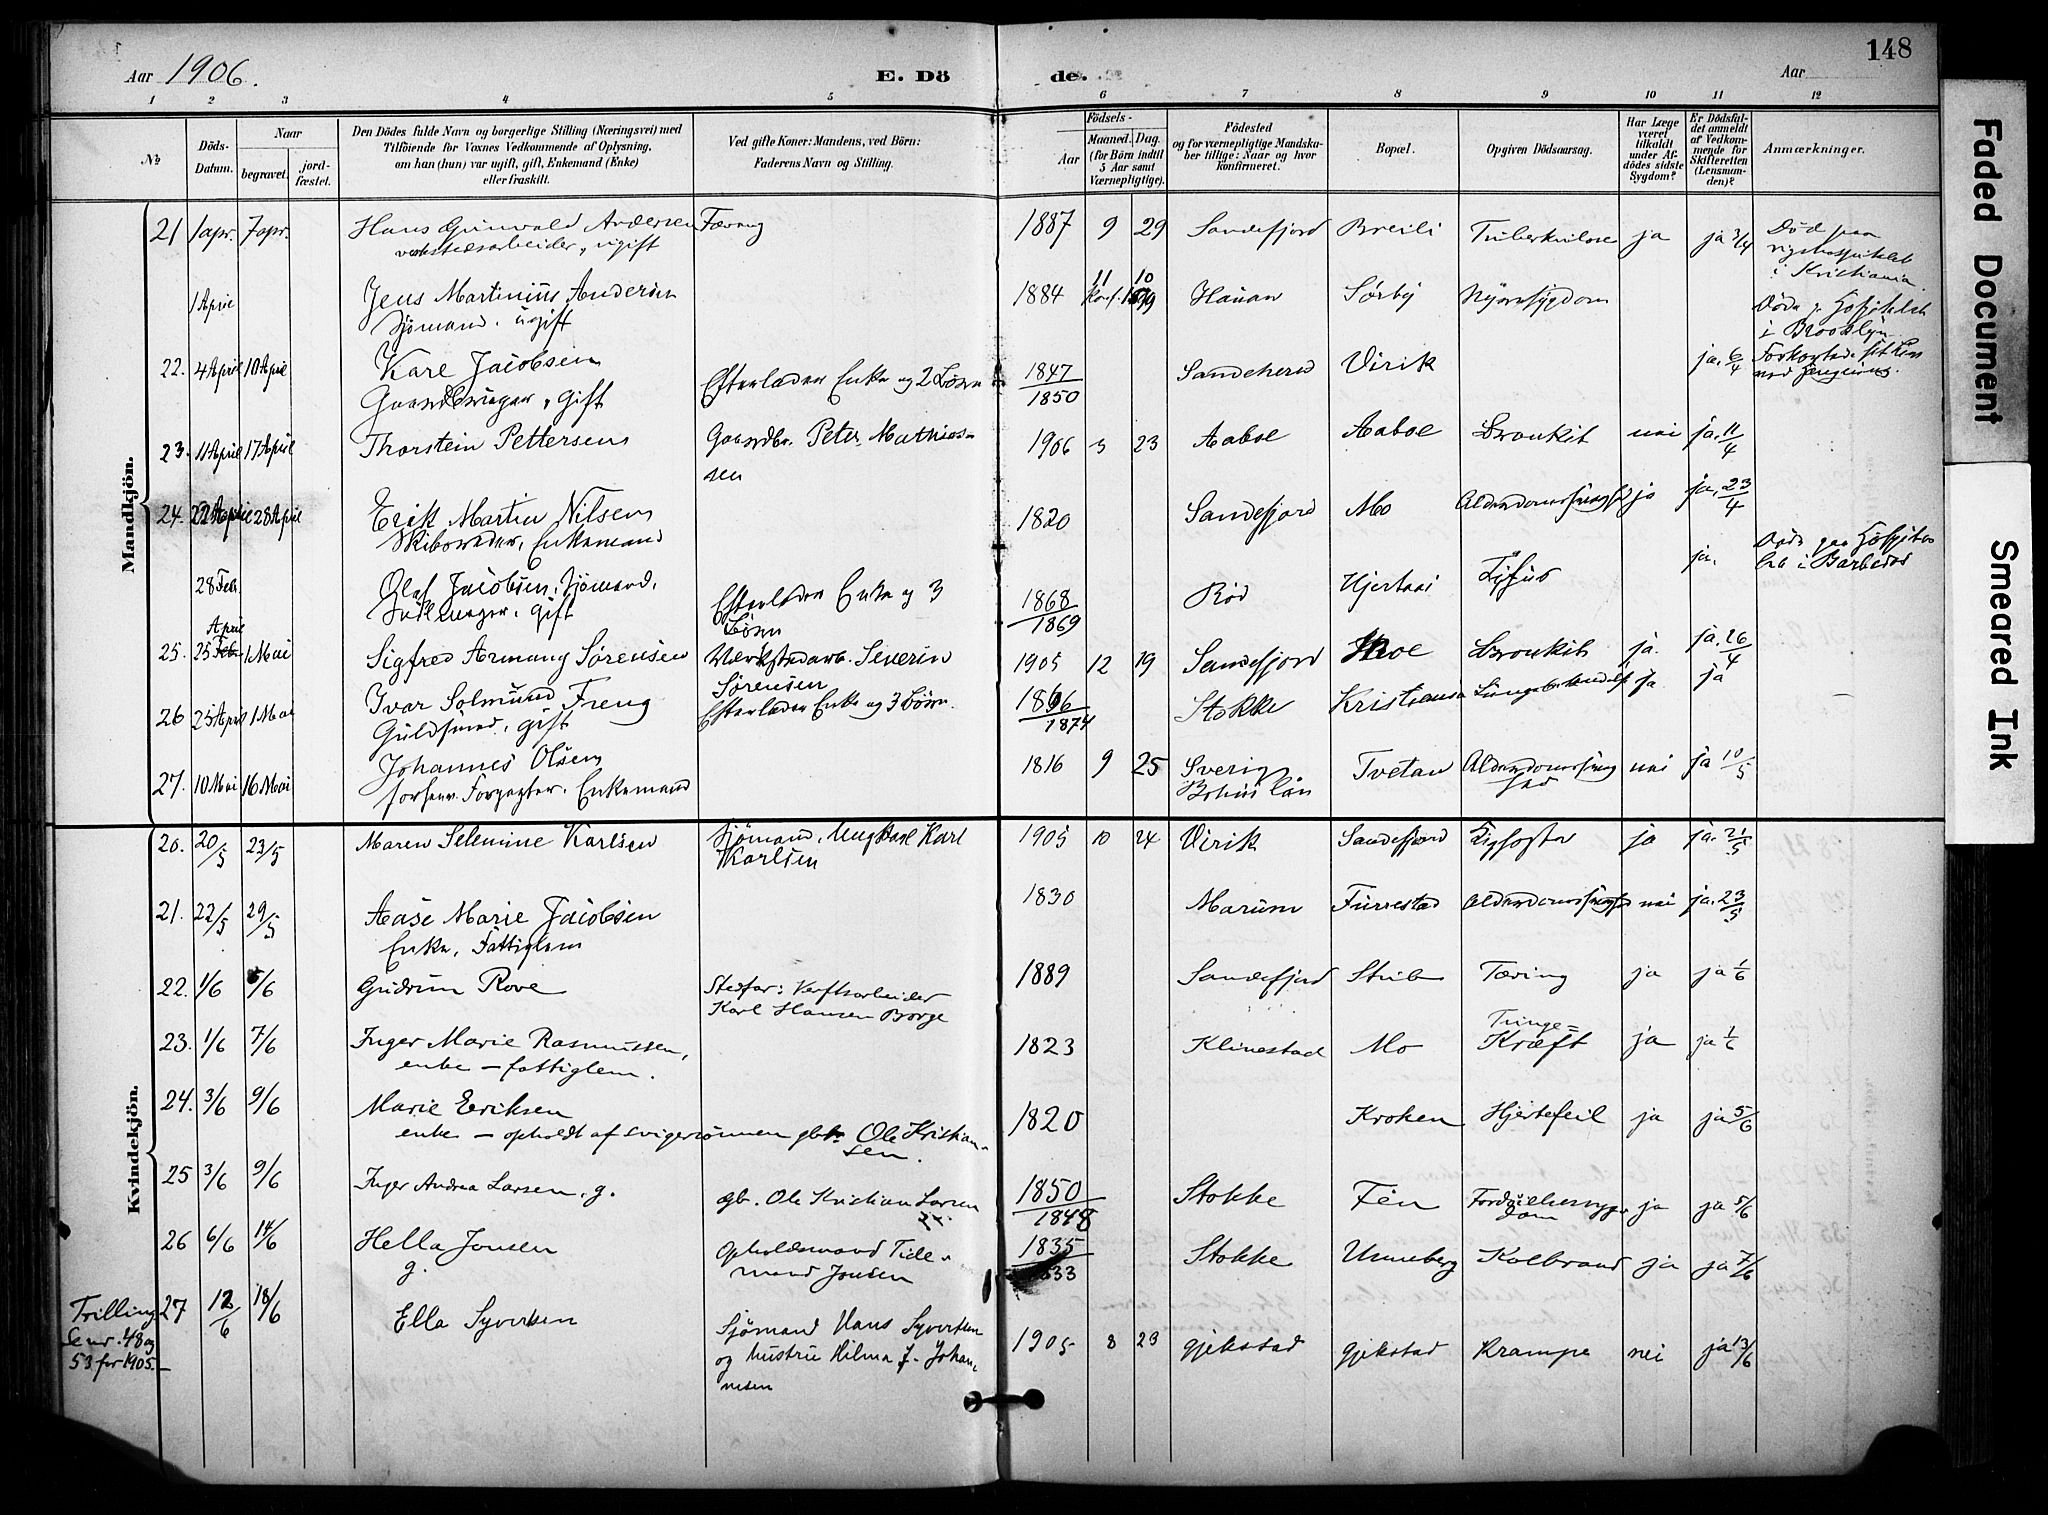 148
Aar 1906.
E. Döde.
Aar
1 2 3 4 5 6 7 8 9 10 11 12
No
Döds-Datum.
Naar
begravet.
jord-fæstet.
Den Dödes fulde Navn og borgerlige Stilling (Næringsvei) med
Tilföiende for Voxnes Vedkommende af Oplysning,
om han (hun) var ugift, gift, Enkemand (Enke)
eller fraskilt.
Ved gifte Koner: Mandens, ved Börn:
Faderens Navn og Stilling.
Födsels-
Aar
Maaned. Dag.
(for Börn indtil
5 Aar samt
Værnepligtige).
Födested
og for værnepligtige Mandska-
ber tillige: Naar og hvor
konfirmeret.
Bopæl.
Opgiven Dödsaarsag.
Har Læge
været
tilkaldt
under Af-
dödes sidste
Sygdom?
Er Dödsfal-
det anmeldt
af Vedkom-
mende for
Skifteretten
(Lensman-
den)?
Anmærkninger.
Mandkjön.
21 1 apr. 7 apr. Hans Grunwald Andersen Færang 1887 9 29 Sandefjord Breili Tuberkulose ja ja 3/4 Död paa
verkstedsarbeider, ugift rigshospitalet
i Kristiania.
1 April Jens Martinius Andersen 1884 11 10 Hauan Sörby Nyresygdom
Sjömand. ugift Konf. i Brooklyn.
22. 4 April 10 April Karl Jacobsen Efterlader Enke og 2 Börn 1847/1850 Sandeherred Virik ja. 6/4 Forkortede sit Liv
Gaardbruger, gift
23. 11 April 17 April Thorstein Pettersen Gaardbr. Peter Mathias-
sen 1906 3 23 Aaboe Aaboe Bronkit nei ja. 11/4
24. 22 April 28 April Erik Martin Nilsen 1820 Sandefjord Mo ja ja, 23/4
Skibsreder, Enkemand
28 Feb. Olaf Jacobsen, Sjömand, Efterlader Enke og 3
Börn 1868/1869 Röd Hjertaas Tyfus ja. Döde paa Hospita-
let i Barbados
gift
25. 25 April 1 Mai Sigfred Armang Sörensen Værkstedarb. Severin
Sörensen 1905 12 19 Sandefjord Bronkit ja. ja. 26/4
26 25 April 1 Mai Ivar Solmund Freng Efterlader Enke og 3 Börn. 1866/1874 Stokke ja ja
Guldsmed, gift
27. 10 Mai 16 Mai Johannes Olsen 1816 9 25 Sverig
Bohus län Tvetan nei ja 10/5
forhenv. Forpagter. Enkemand
Kvindekjön.
20. 20/5 23/5 Maren Selemine Karlsen Sjömand, Ungkarl Karl
Karlsen 1905 10 24 Virik Sandefjord ja ja. 21/5
21. 22/5 29/5 Aase Marie Jacobsen 1830 Marum Furrestad nei ja. 23/5
Enke, Fattiglem
22. 1/6 5/6 Gudrun Rove Stedfar: Verftsarbeider
Karl Hansen Borge 1889 Sandefjord Stub Tæring ja ja 1/6
23. 1/6 7/6 Inger Marie Rasmussen, 1823 Klinestad Mo Tunge=
Kræft ja ja 1/6
enke — fattiglem.
24. 3/6 9/6 Marie Eriksen 1820 Kroken Hjertefeil ja ja 5/6
enke — opholdt af svigersönnen gbr. Ole Kristian-
sen.
25 3/6 9/6 Inger Andrea Larsen, g. gb. Ole Kristian Larsen 1850/1848 Stokke Fèn ja ja 5/6
26 6/6 14/6 Hella Jonsen Opholdsmand Tide-
mand Jonsen 1835/1833 Stokke Unneberg Kolbrand ja ja 7/6
g.
Trilling
Se nr. 48 og
53 for 1905.
27 12/6 18/6 Ella Syvertsen Sjömand Hans Syvertsen
og hustru Hilma J. Johan-
nesen 1905 8 23 gjekstad gjekstad Krampe nei ja 13/6
Faded Document
Smeared Ink